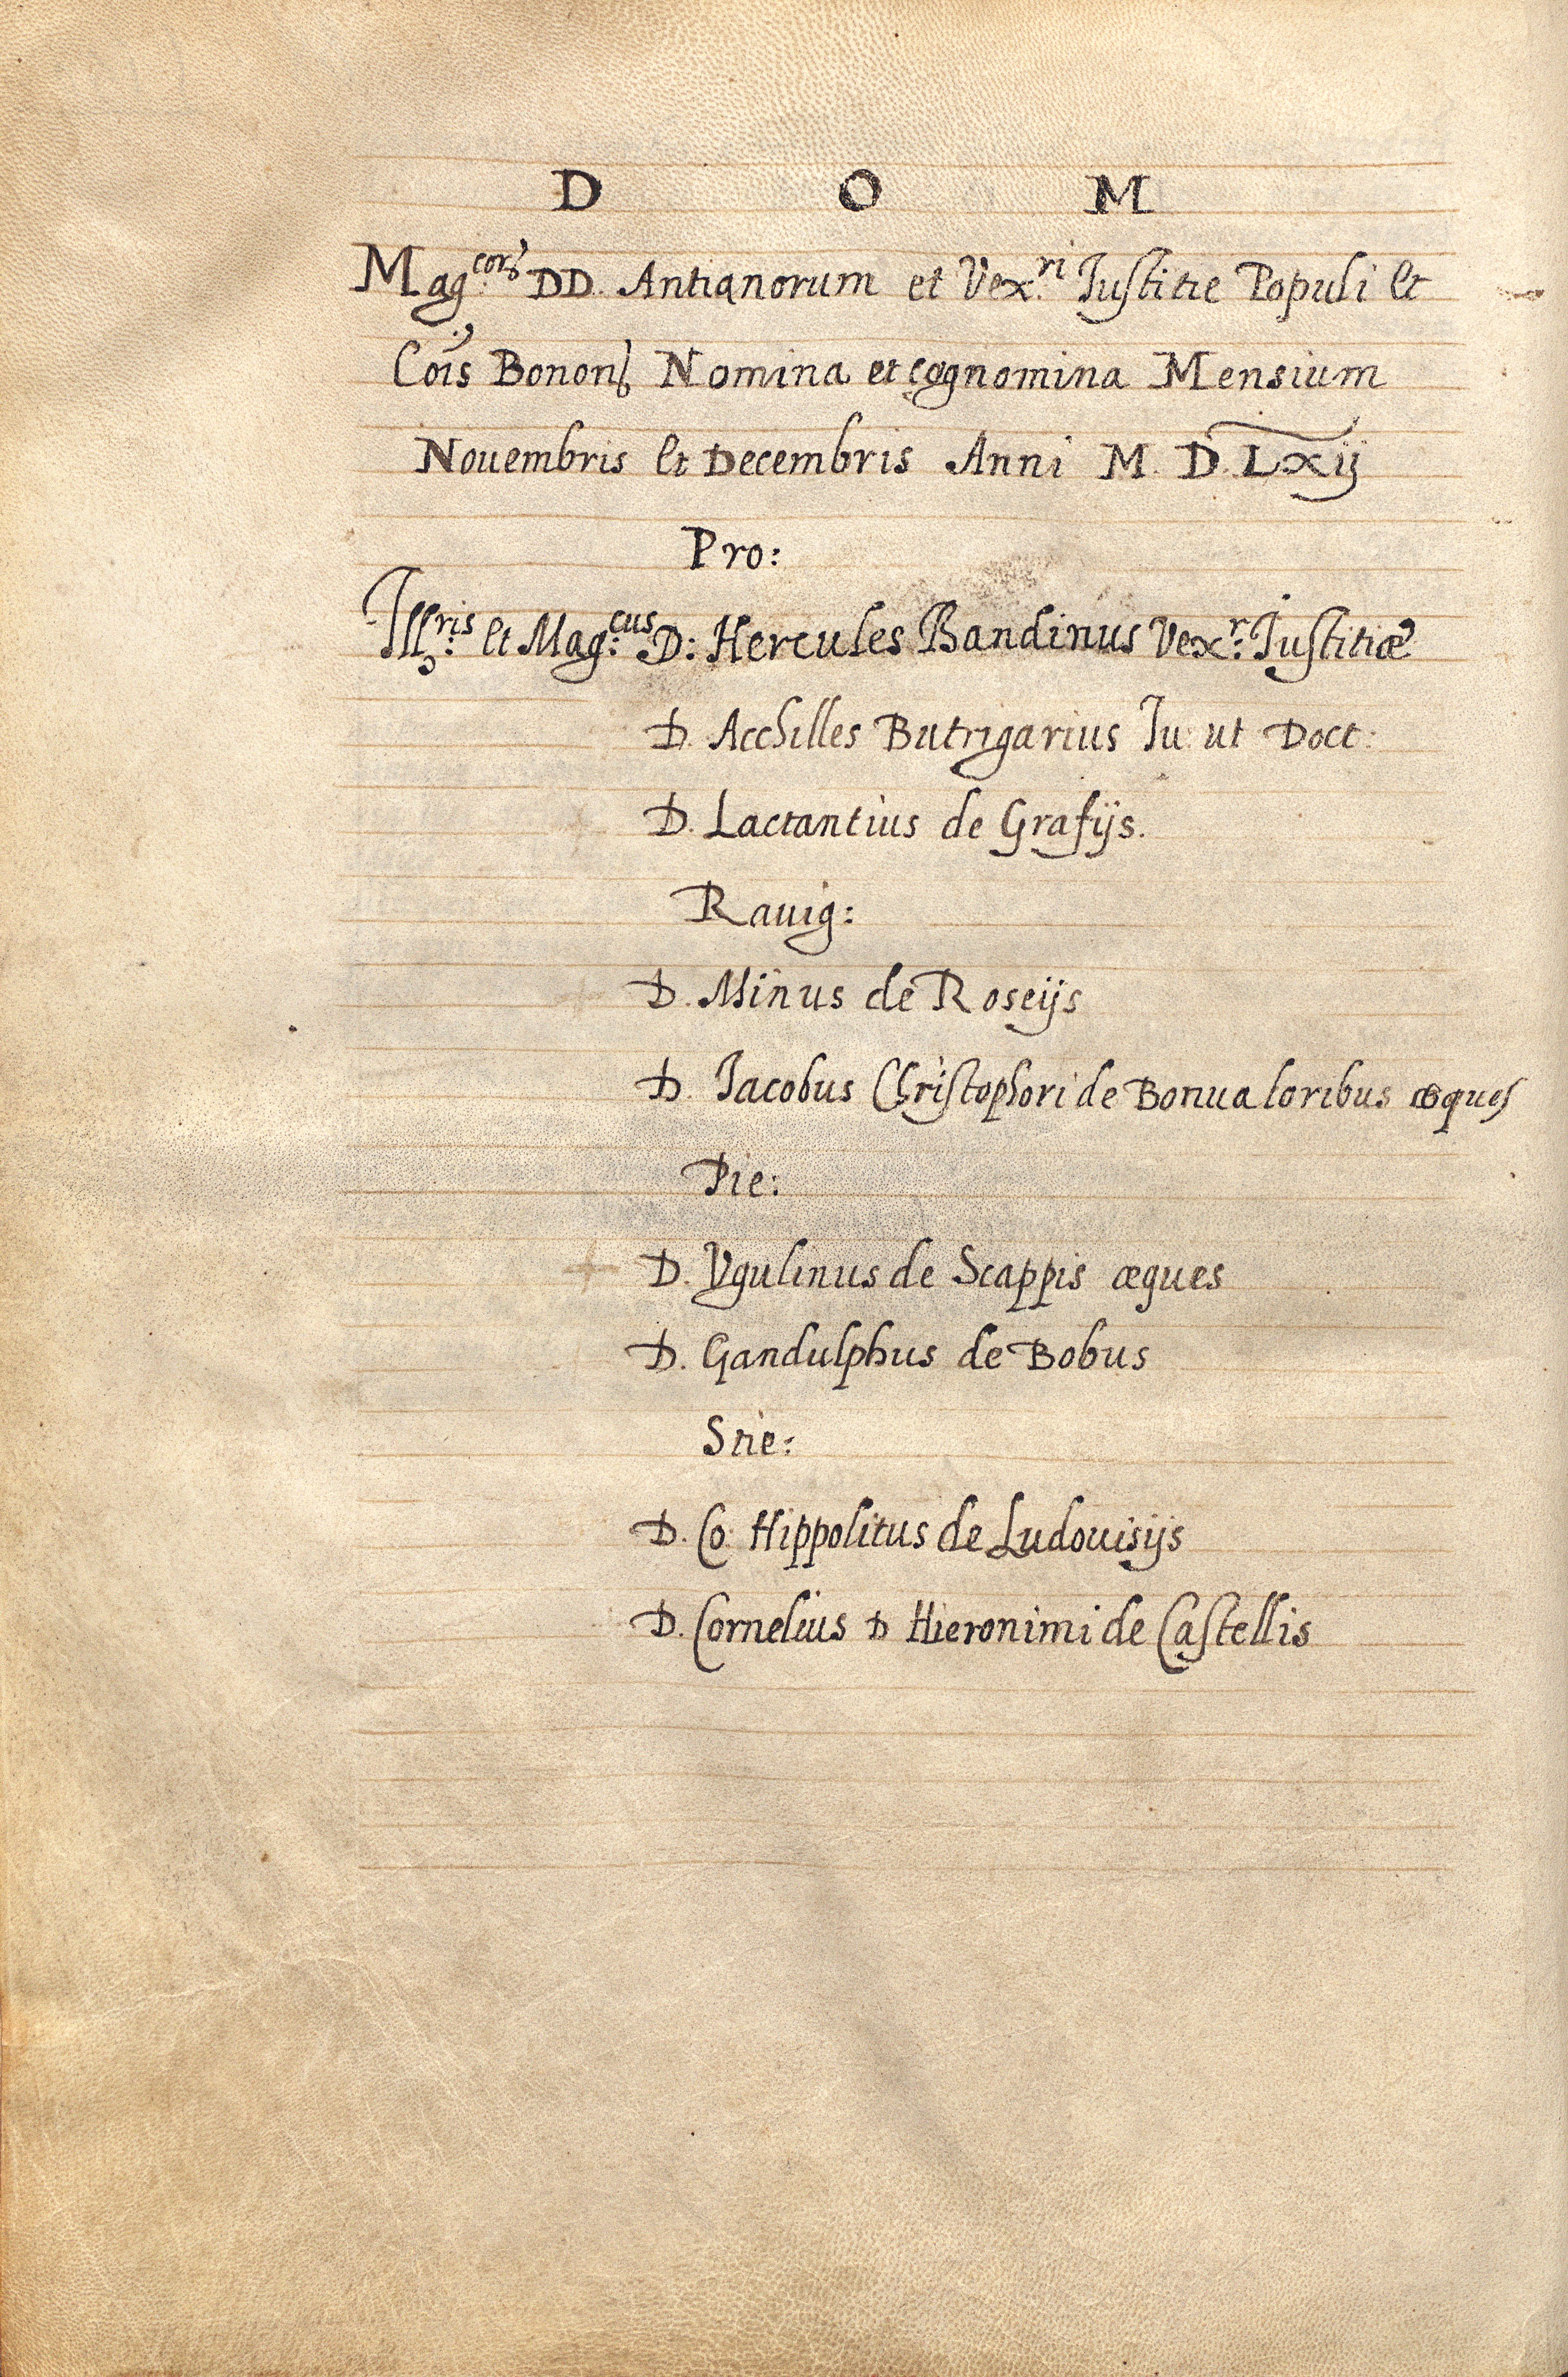 D O M
Mag.cor DD. Antianorum et Vex.ri Iustitie Populi et
Cois Bonon Nomina et cognomina Mensium
Nouembris et Decembris Anni M. D. Lxij
Pro:
Ill.ris et Mag.cus D: Hercules Bandinus Vex.r Iustitiæ
D. Acchilles Butrigarius Iu: ut Doct:
D. Lactantius de Grafijs.
Rauig:
D. Minus de Roseijs
D. Iacobus Christophori de Bonualoribus æques
Pie:
D. Vgulinus de Scappis æques
D. Gandulphus de Bobus
Stie:
D. Co: Hippolitus de Ludouisijs
D. Cornelius D Hieronimi de Castellis